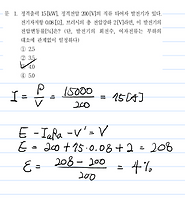 문 1. 정격출력 15[kW], 정격전압 200[V]의 직류 타여자 발전기가 있다.
전기자저항 0.08[Ω], 브러시의 총 전압강하 2[V]라면, 이 발전기의
전압변동률[%]은? (단, 발전기의 회전수, 여자전류는 부하의
대소에 관계없이 일정하다)
① 2.5
② 3.5
③ 4.0
④ 5.0
I = P/V = 15000/200 = 75[A]
E - IaRa - V' = V
E = 200 + 75·0.08 + 2 = 208
ε = (208 - 200)/200 = 4%